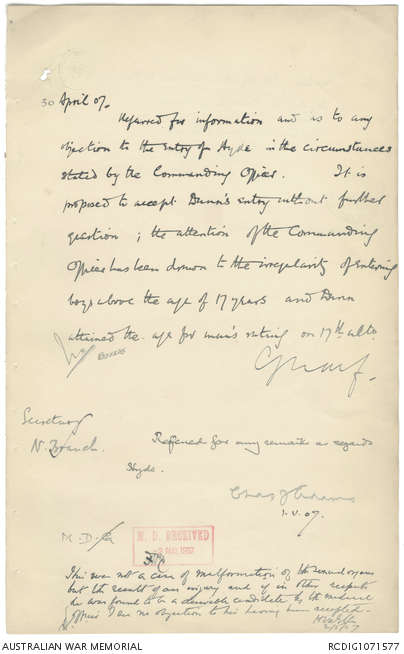 30 April 07.
Referred for information and as to any
objection to the entry of Hyde in the circumstances
stated by the Commanding Officer. It is
proposed to accept Dunn's entry without further
question; the attention of the Commanding
Officer has been drawn to the irregularity of entering
boys above the age of 17 years and Dunn
attained the age for man's rating on 17th ulto.
Secretary
N. Branch.
Referred for any remarks as regards
Hyde.
1.V.07.
M.D.G.
M. D. RECEIVED
MAY 1907
This was not a case of malformation of the sexual organs
but the result of an injury and if in other respects
he was found to be a desirable candidate by the medical
officer I see no objection to his having been accepted.
AUSTRALIAN WAR MEMORIAL
RCDIG1071577